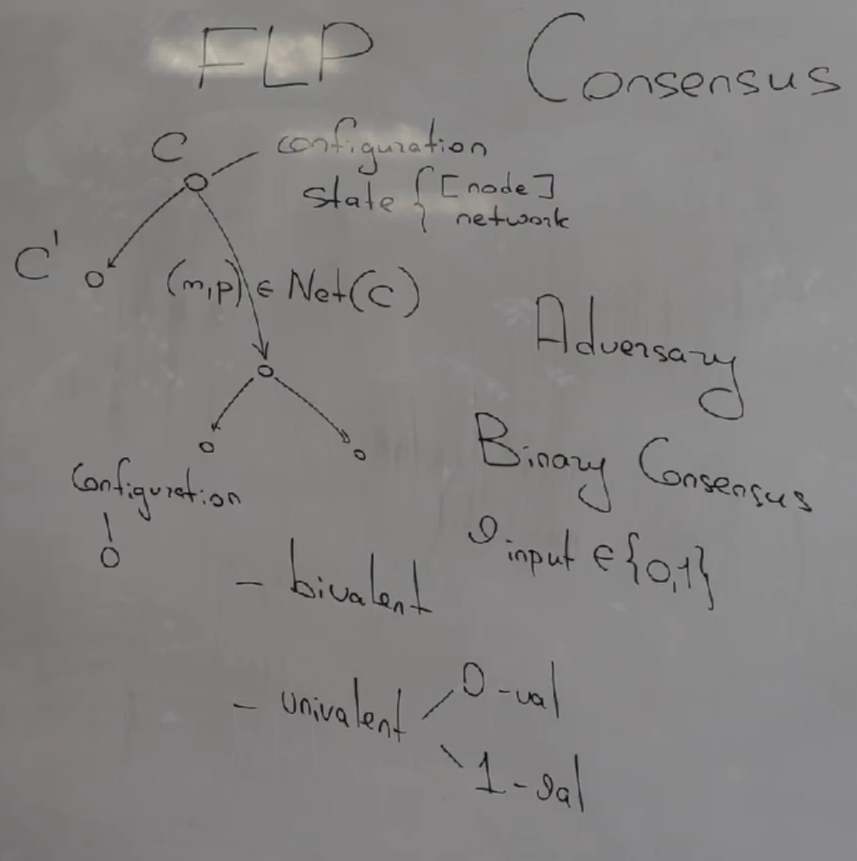 FLP
Consensus
C
configuration
state { [node]
network
C'
(m,p) ∈ Net(C)
Adversary
Binary Consensus
input ∈ {0,1}
Configuration
- bivalent
- univalent
0-val
1-val